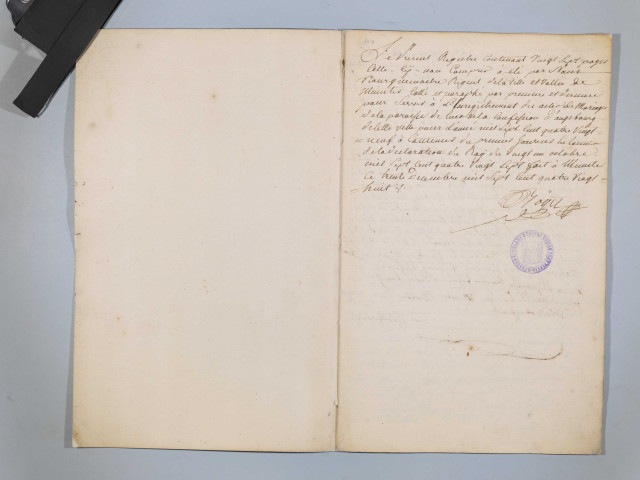 Le Present Registre Contenant Vingt Sept pages
Celle Cy non Comprise à été par Nous
Bourguemaitre Regent de la Ville et Vallée de
Munster Cotté et paraphé par premiere et derniere
pour Servir à L'Enregistrement des actes de Mariage
de la paroisse de la Confession d'augsbourg
de cette ville pour L'année mil sept Cent quatre Vingt
neuf à Commencer du premier Janvier
de la declaration du Roy du Vingt un octobre
mil Sept Cent quatre Vingt Sept fait à Munster
Ce trente Decembre mil Sept Cent quatre Vingt
huit